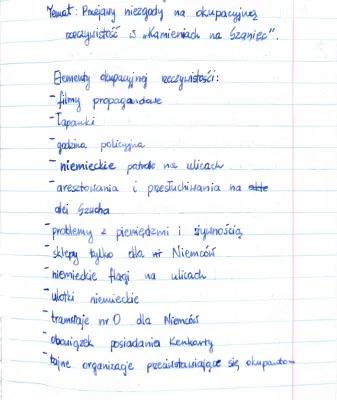 Temat: Przejawy niezgody na okupacyjną
rzeczywistość z „Kamieniach na Szaniec".
Elementy okupacyjnej rzeczywistości:
- filmy propagandowe
- łapanki
- godzina policyjna
- niemieckie patrole na ulicach
- aresztowania i przesłuchiwania na
alei Szucha
- problemy z pieniędzmi i żywnością
- sklepy tylko dla Niemców
- niemieckie flagi na ulicach
- ulotki niemieckie
- tramwaje nr 0 dla Niemców
- obowiązek posiadania Kenkarty
- tajne organizacje przeciwstawiające się okupantom